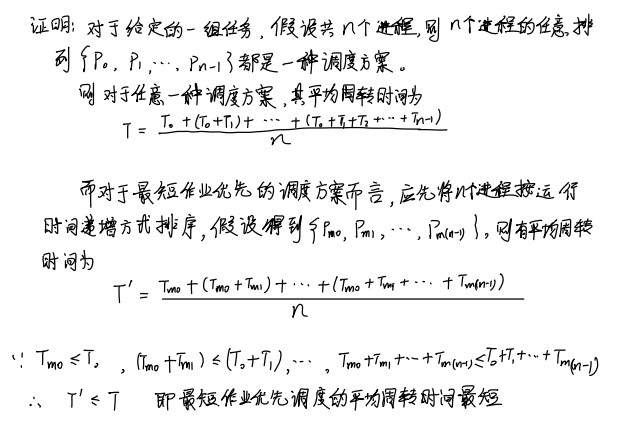 证明: 对于给定的一组任务, 假设共n个进程, 则n个进程的任意排
列{P₀, P₁, ⋯, Pₙ₋₁}都是一种调度方案。
则对于任意一种调度方案, 其平均周转时间为
T = \frac{T₀+(T₀+T₁)+⋯+(T₀+T₁+T₂+⋯+Tₙ₋₁)}{n}
而对于最短作业优先的调度方案而言, 应先将n个进程按运行
时间递增方式排序, 假设得到{Pₘ₀, Pₘ₁, ⋯, Pₘ₍ₙ₋₁₎}, 则有平均周转
时间为
T' = \frac{Tₘ₀+(Tₘ₀+Tₘ₁)+⋯+(Tₘ₀+Tₘ₁+⋯+Tₘ₍ₙ₋₁₎)}{n}
∵ Tₘ₀≤T₀, (Tₘ₀+Tₘ₁)≤(T₀+T₁), ⋯, Tₘ₀+Tₘ₁+⋯+Tₘ₍ₙ₋₁₎≤T₀+T₁+⋯+Tₘ₍ₙ₋₁₎
∴ T'≤T 即最短作业优先调度的平均周转时间最短